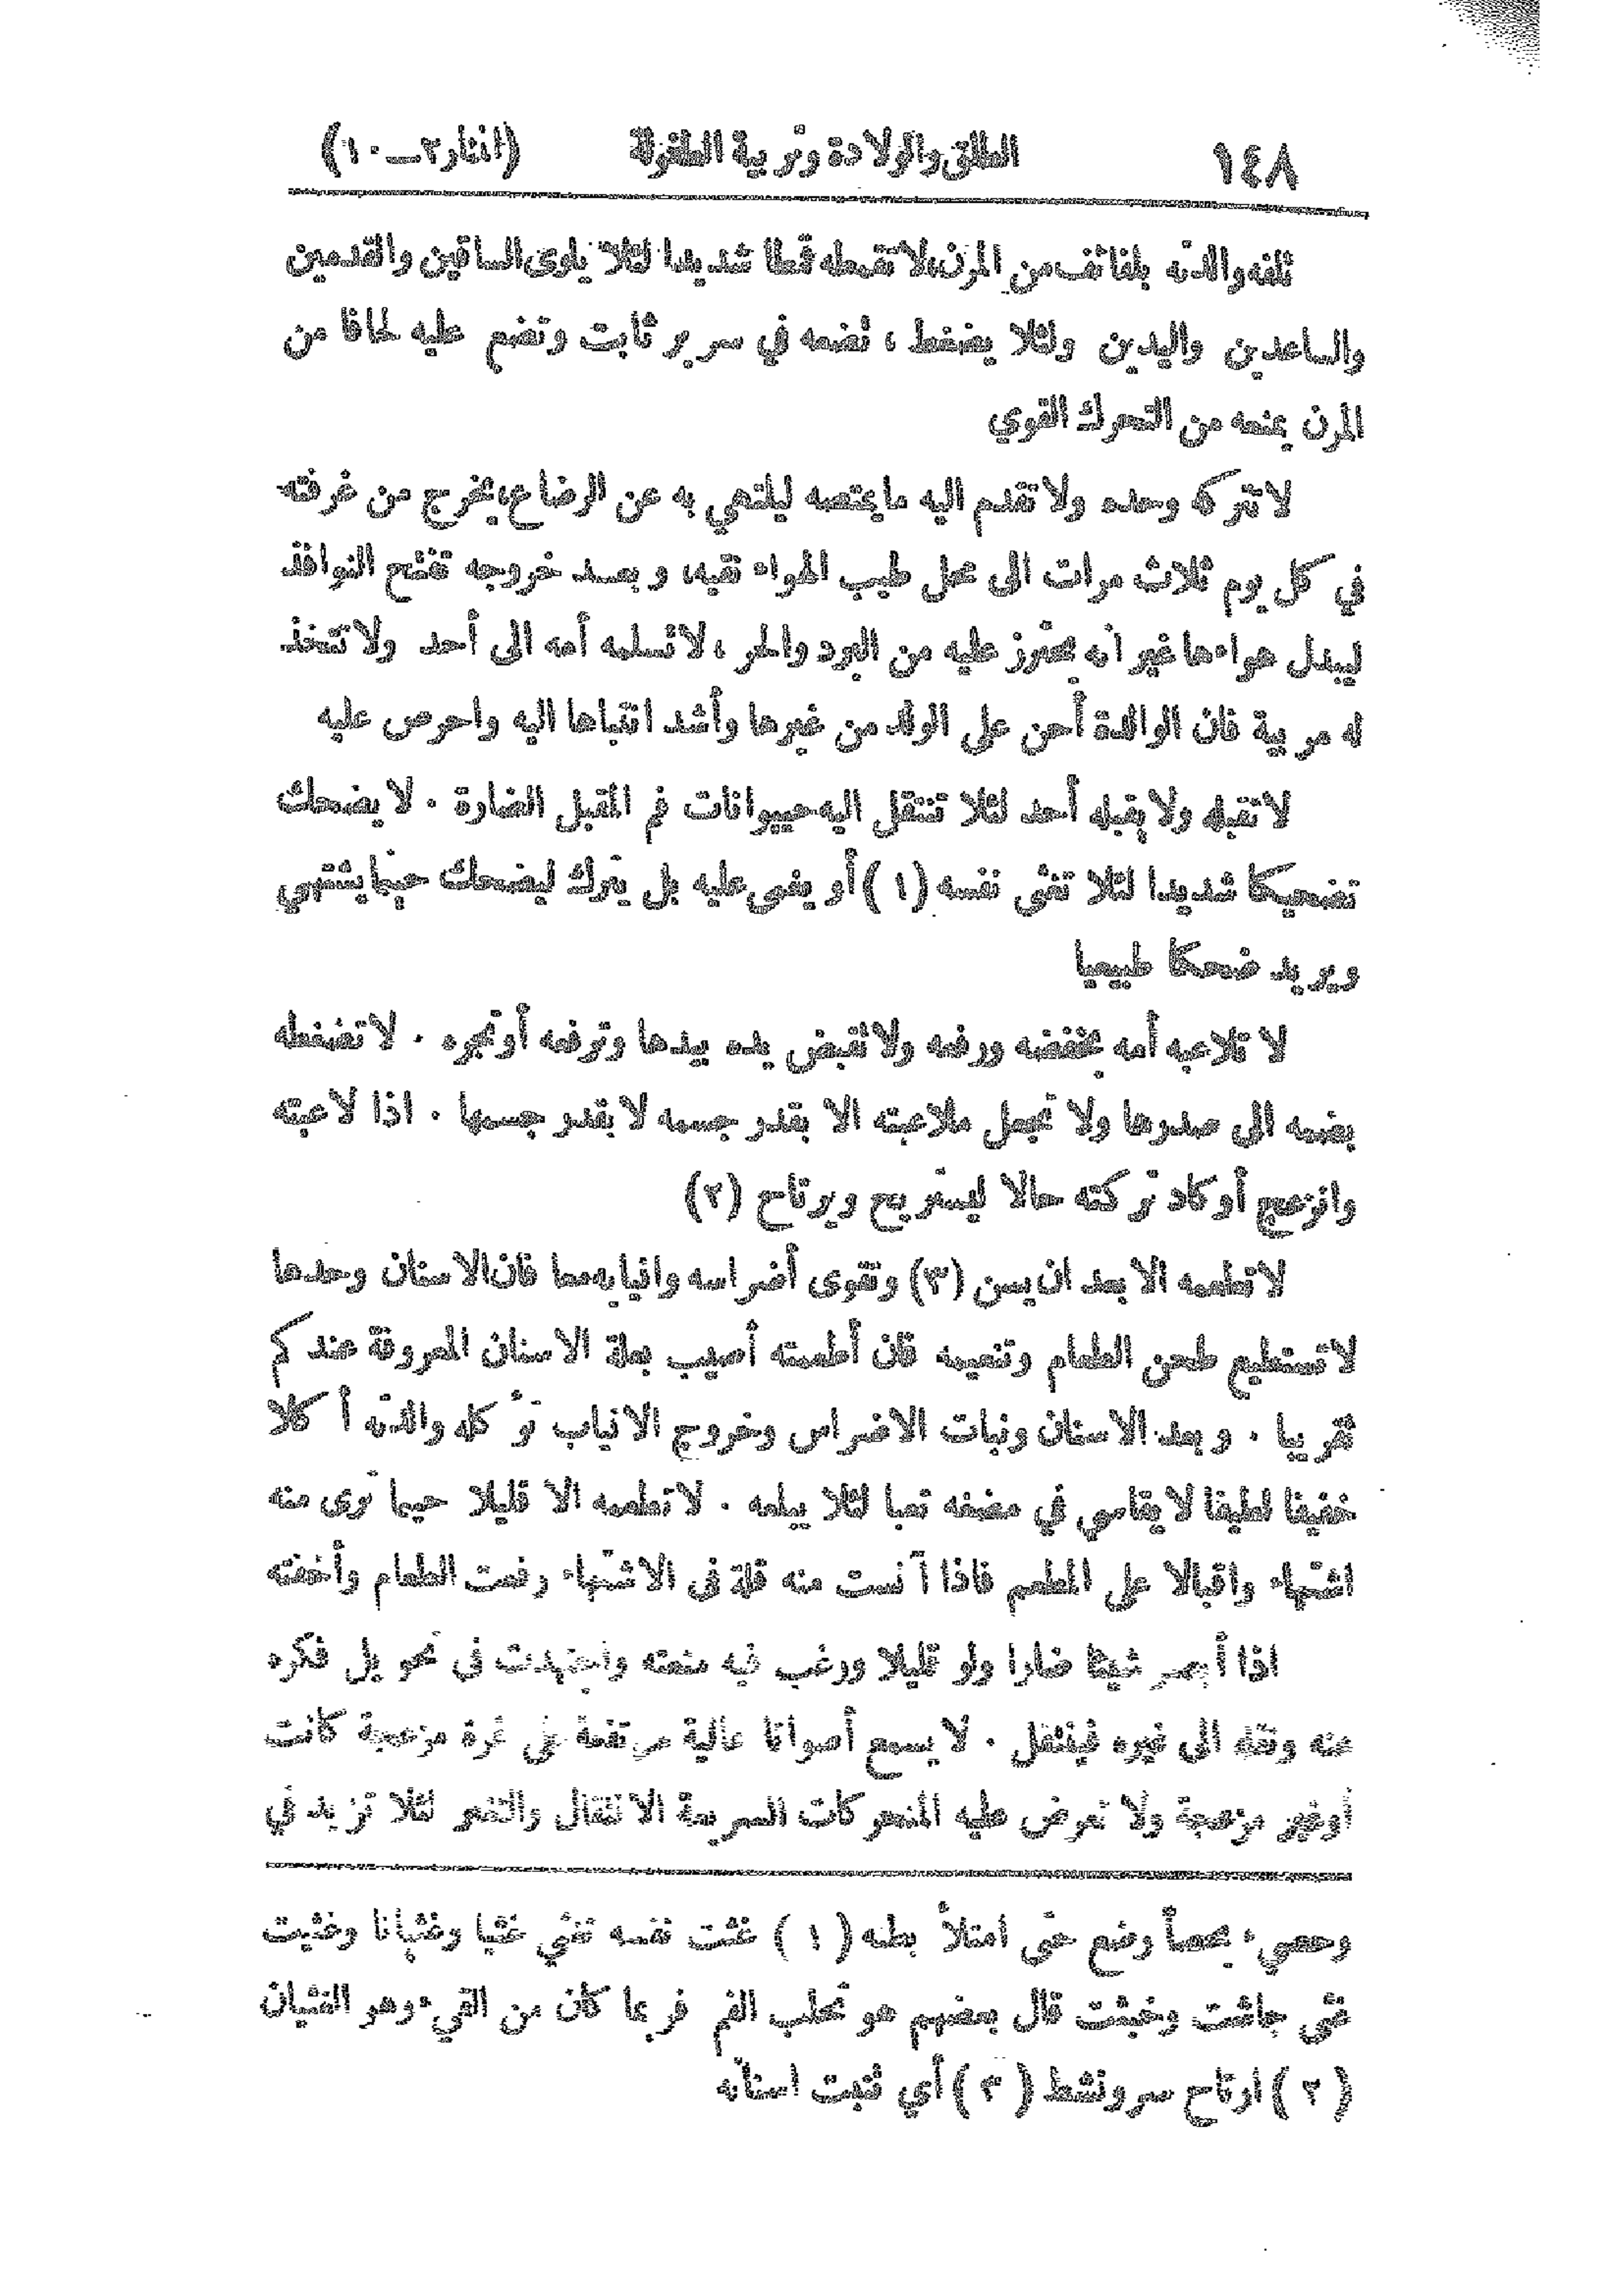 ١٤٨ الطلق والولادة وتربية الطفولة (المنار ٢ــ١٠)
تلفه والدته بلفائف من المرن، لا تقمطه قمطا شديدا لئلا يلوى الساقين والقدمين
والساعدين واليدين ولئلا يضغط ، تضعه في سرير ثابت وتضم عليه لحافا من
المرن يمنعه من التحرك القوي
لا تتركه وحده ولا تقدم اليه ما يمتصه ليلتهي به عن الرضاع، يخرج من غرفته
في كل يوم ثلاث مرات الى محل طيب الهواء نقيه، وبعد خروجه تفتح النوافذ
ليبدل هواءها غير أنه يحترز عليه من البرد والحر ، لا تسلمه أمه الى أحد ولا تتخذ
له مربية فان الوالدة أحن على الولد من غيرها وأشد انتباها اليه واحرص عليه
لا تقبله ولا يقبله أحد لئلا تنتقل اليه حييوانات فم المقبل الضارة . لا يضحك
تضحيكا شديدا لئلا تغثى نفسه (١) أو يغمى عليه بل يترك ليضحك حينما يشتهي
ويريد ضحكا طبيعيا
لا تلاعبه أمه بخفضه ورفعه ولا تقبض يده بيدها وترفعه أو تجره . لا تضغطه
بضمه الى صدرها ولا تجعل ملاعبته الا بقدر جسمه لا بقدر جسمها . اذا لاعبته
وانزعج أو كاد تركته حالا ليستريح ويرتاح (٢)
لا تطعمه الا بعد ان يسن (٣) وتقوى أضراسه وانيابه معا فان الاسنان وحدها
لا تستطيع طحن الطعام وتنعيمه فان أطعمته أصيب بعلة الاسنان المعروفة عندكم
تقريبا . وبعد الاسنان ونبات الاضراس وخروج الانياب تؤكله والدته أكلا
خفيفا لطيفا لا يقاسي في مضغه تعبا لئلا يبلعه . لا تطعمه الا قليلا حينما ترى منه
اشتهاء واقبالا على المطعم فاذا آنست منه قلة في الاشتهاء رفعت الطعام وأخفته
اذا أبصر شيئا ضارا ولو قليلا ورغب فيه منعته واجتهدت في تحويل فكره
عنه ونقله الى غيره فينتقل . لا يسمع أصواتا عالية مرتفعة على غرة مزعجة كانت
أو غير مزعجة ولا تعرض عليه المتحركات السريعة الانتقال والتغير لئلا تزيد في
وحصيء يحصأ وضع حتى امتلأ بطنه (١) غثت نفسه تغثي غثيا وغثيانا وغثيت
غثى جاشت وخبثت قال بعضهم هو تحلب الفم فربما كان من القيء وهو الغثيان
(٢) ارتاح سر ونشط (٣) أي تنبت اسنانه